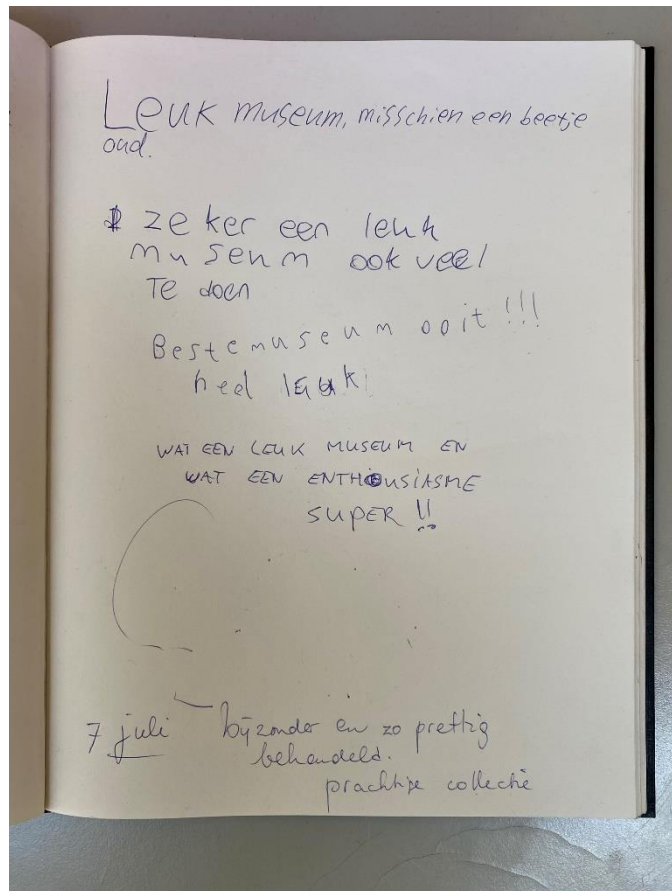 Leuk museum, misschien een beetje
oud.
zeker een leuk
museum ook veel
Te doen
Beste museum ooit!!!
heel leuk!
WAT EEN LEUK MUSEUM EN
WAT EEN ENTHOUSIASME
SUPER!!
7 juli bijzonder en zo prettig
behandeld.
prachtige collectie